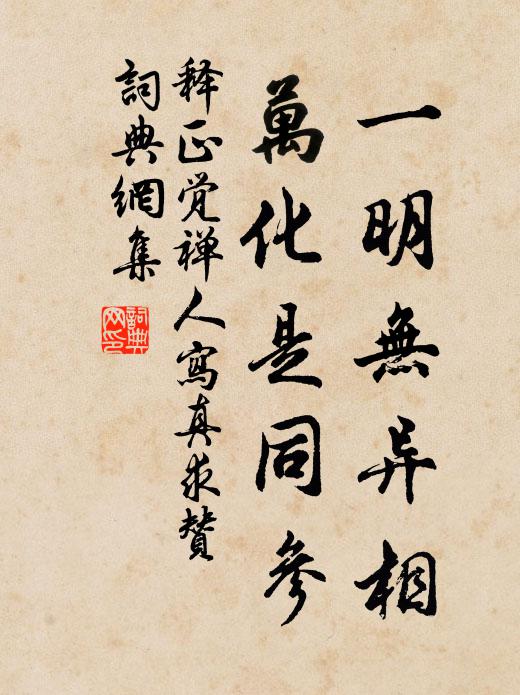 一明無异相
萬化是同參
释正觉禅人寫真求贊
詞典網集
詞典網印